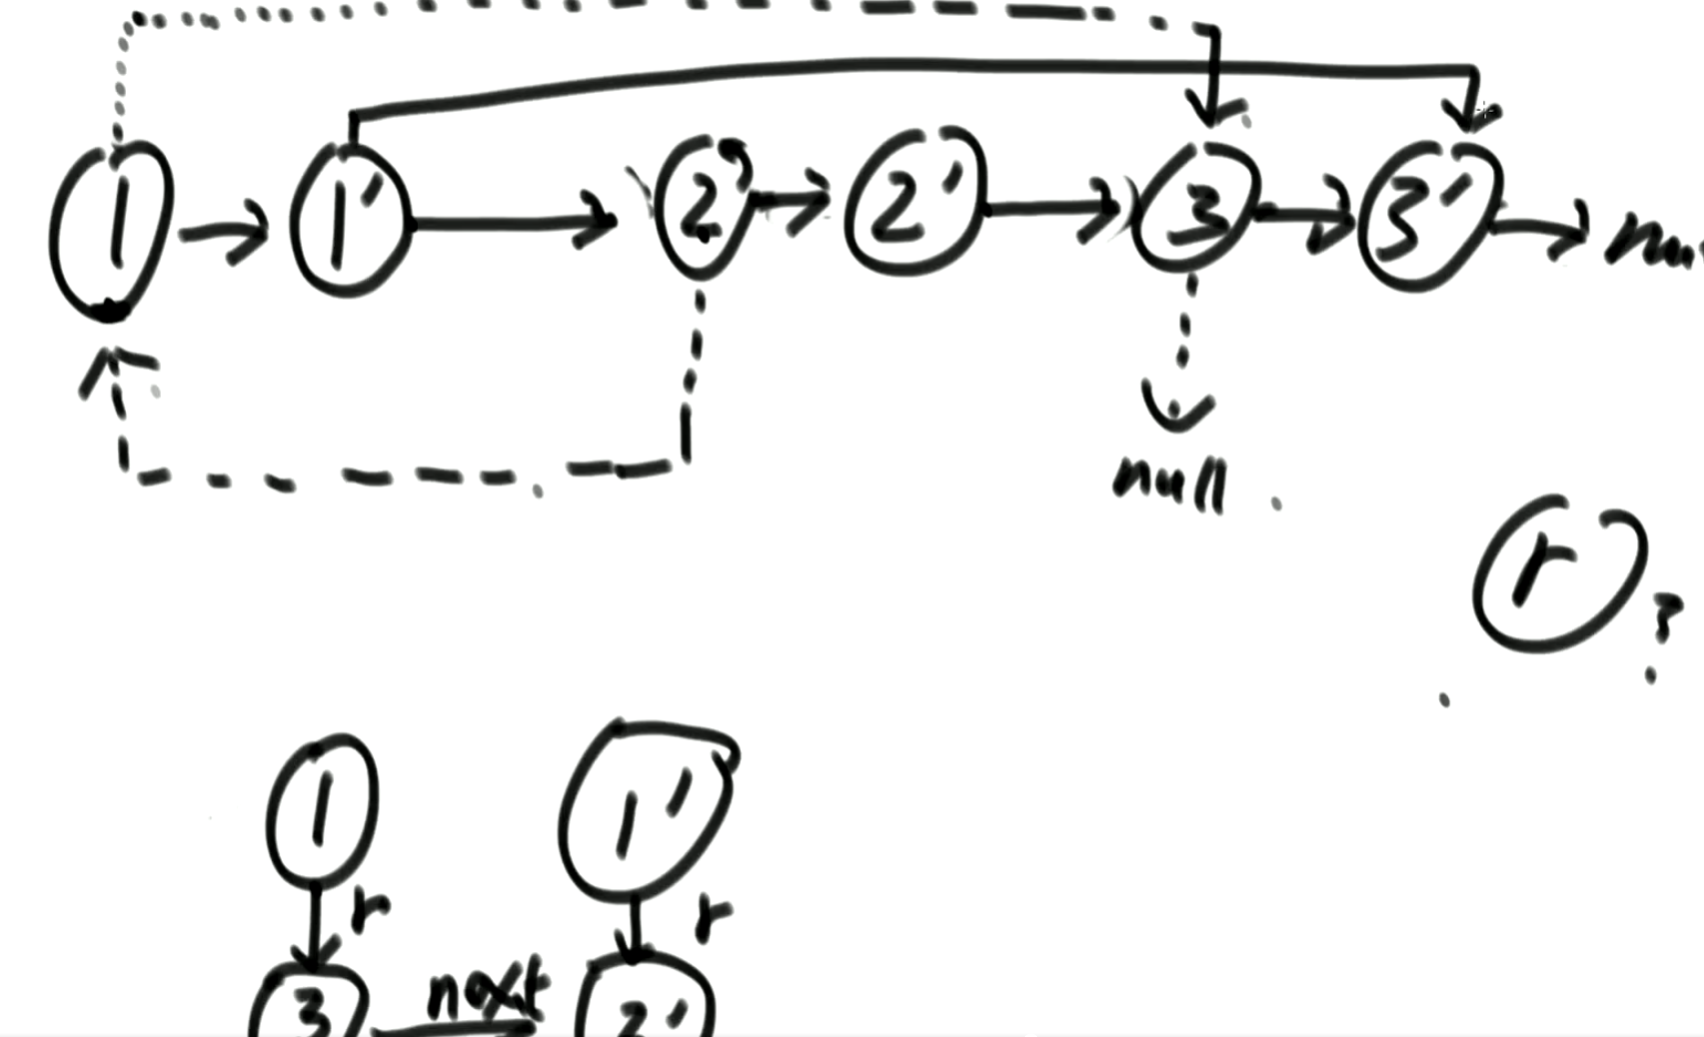 1 1' 2 2' 3 3'
null
r ?
1 1'
r r
3 next